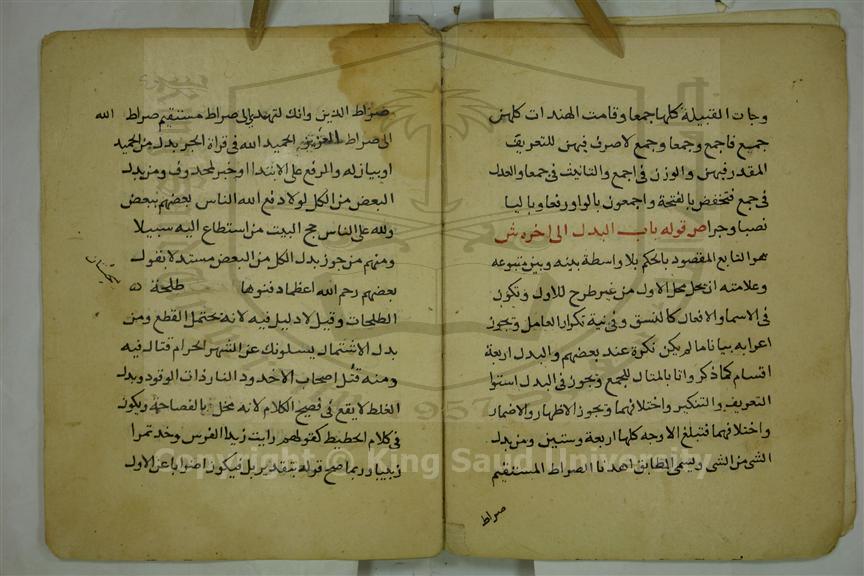 وجات القبيلة كلها جمعا وقامت الهندات كلهن
جميع فاجمع وجمعا وجمع لا صرف فيهن للتعريف
المقدر فيهن والوزن في اجمع والتانيث في جمعا والعدل
في جمع فتخفض بالفتحة واجمعون بالواو رفعا وباليا
نصبا وجرا ص قوله باب البدل الى اخره ش
هو التابع المقصود بالحكم بلا واسطة بينه وبين متبوعه
وعلامته ان يحل محل الاول من غير طرح للاول وتكون
في الاسما والافعال كالنسق وفي نية تكرار العامل وتجوز
اعرابه بيانا ما لم يكن نكرة عند بعضهم والبدل اربعة
اقسام كما ذكر وانا بالمثال للجمع وتجوز في البدل استوا
التعريف والتنكير واختلافهما وتجوز الاظهار والاضمار
واختلافهما فتبلغ الاوجه كلها اربعة وستين ومن بدل
الشي من الشي ويسمى المطابق اهدنا الصراط المستقيم
صراط
صراط الذين وانك لتهدي الى صراط مستقيم صراط الله
الى صراط العزيز الحميد الله في قراة الجر بدل من الحميد
او بيان له والرفع على الابتدا او خبر لمحذوف ومن بدل
البعض من الكل لولا دفع الله الناس بعضهم ببعض
ولله على الناس حج البيت من استطاع اليه سبيلا
ومنهم من جوز بدل الكل من البعض مستدلا بقول
بعضهم رحم الله اعظما دفنوها طلحة
الطلحات وقيل لا دليل فيه لانه يحتمل القطع ومن
بدل الاشتمال يسلونك عن الشهر الحرام قتال فيه
ومنه قتل اصحاب الاخدود النار ذات الوقود وبدل
الغلط لا يقع في فصيح الكلام لانه مخل بالفصاحة ويكون
في كلام كقولهم رايت زيدا الفرس وخذ تمرا
زبيبا وربما صح قوله بتقدير بل فيكون اضرابا عن الاول
Copyright © King Saud University
1957